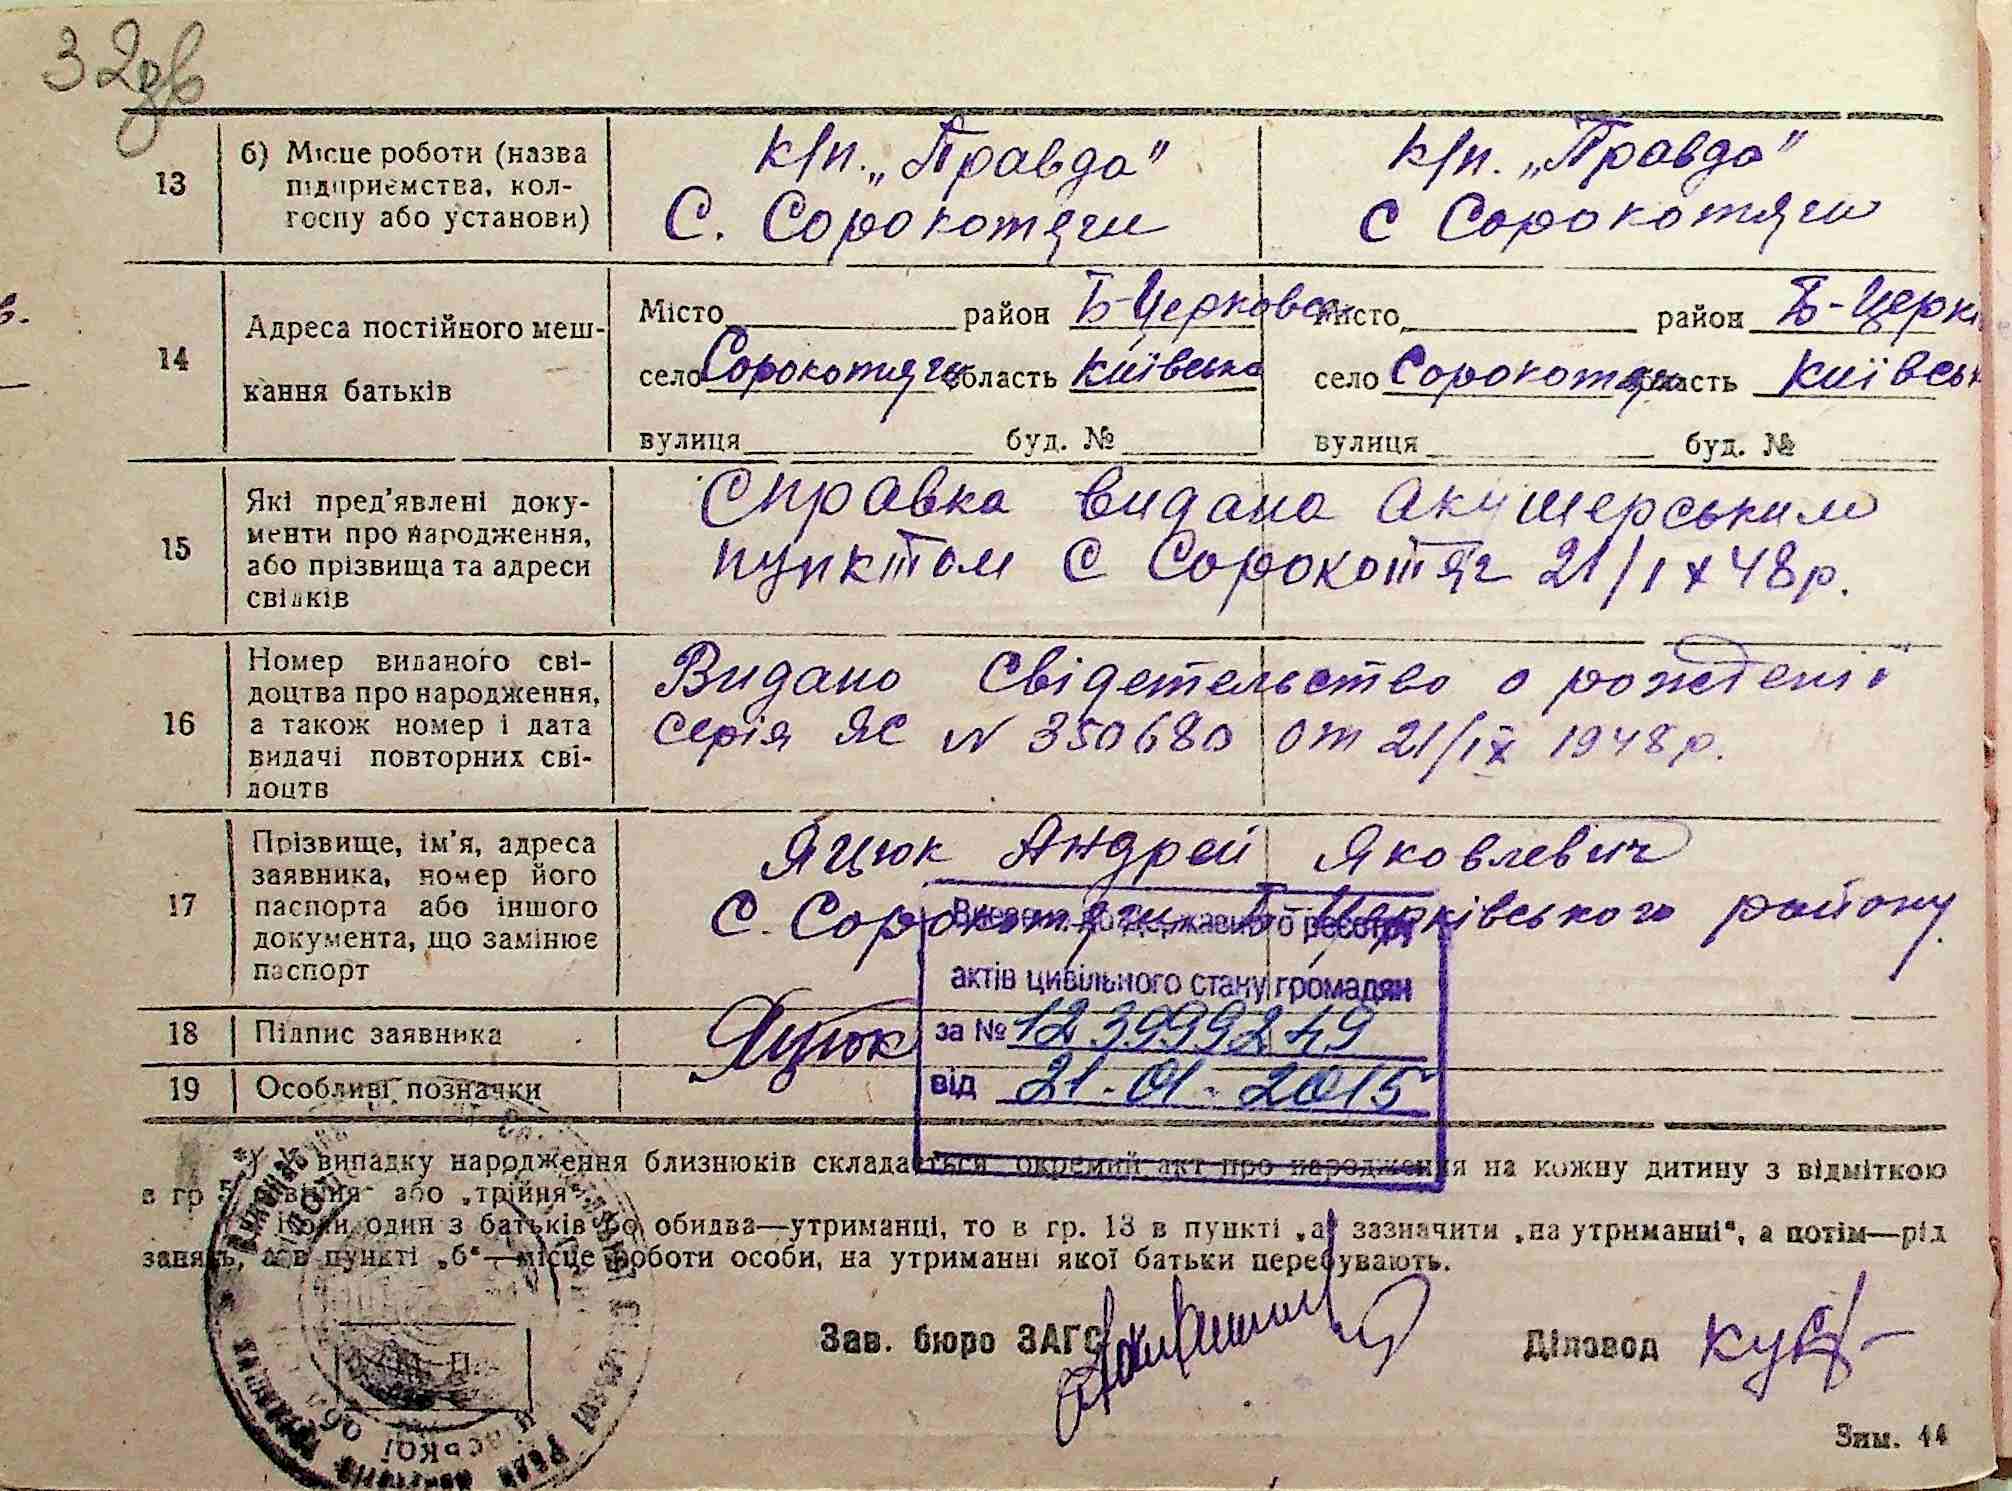 32
13
б) Місце роботи (назва
підприємства, кол-
госпу або установи)
к/п. „Правда"
С. Сорокотяги
к/п. „Правда"
с Сорокотяги
14
Адреса постійного меш-
кання батьків
Місто район Б-Церковськ
село Сорокотяги область Київська
вулиця буд. №
Місто район Б-Церкі
село Сорокотяги область Київськ
вулиця буд. №
15
Які пред'явлені доку-
менти про народження,
або прізвища та адреси
свідків
Справка видана акушерським
пунктом с Сорокотяг 21/ІХ 48р.
16
Номер виданого сві-
доцтва про народження,
а також номер і дата
видачі повторних сві-
доцтв
Видано свідетельство о рождени
серія ЯС N 350680 от 21/ІХ 1948р.
17
Прізвище, ім'я, адреса
заявника, номер його
паспорта або іншого
документа, що замінює
паспорт
Яцюк Андрей Яковлевич
С. Сорокотяги Б Церківського району.
18
Підпис заявника
Яцюк
19
Особливі позначки
Внесено до Державного реєстру
актів цивільного стану громадян
за № 1239992 49
від 21-01-2015
*) У випадку народження близнюків складається окремий акт про народження на кожну дитину з відміткою
в гр 5 „двійня" або „трійня".
Коли один з батьків або обидва—утриманці, то в гр. 13 в пункті „а" зазначити „на утриманні", а потім—рід
занять, а в пункті „б"—місце роботи особи, на утриманні якої батьки перебувають.
Зав. бюро ЗАГС
Діловод
Зим. 44